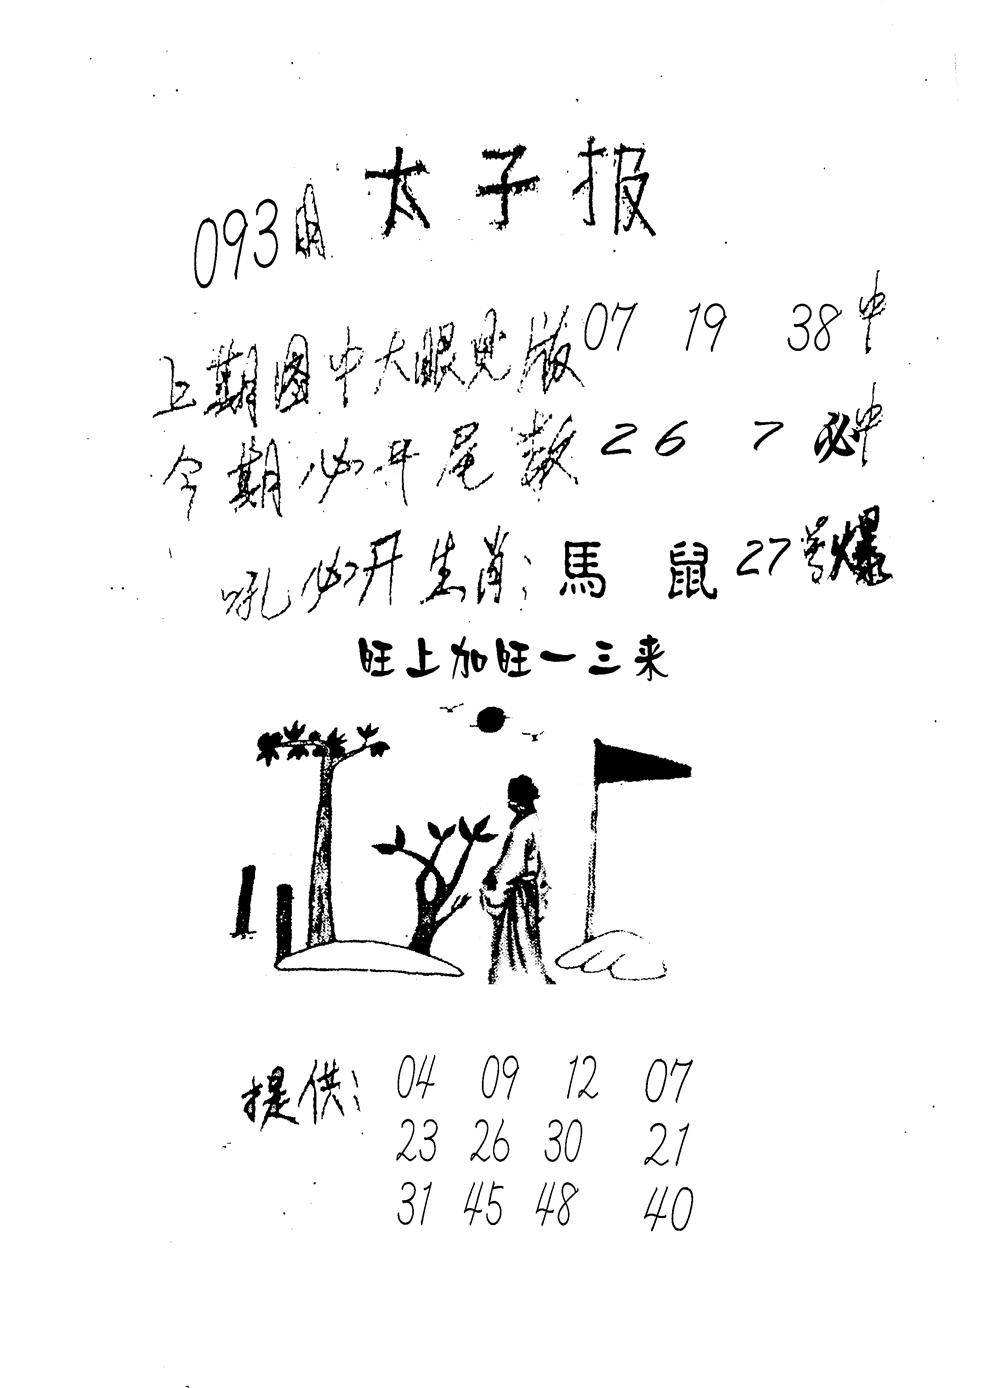 太子报
093期
上期图中大眼见版07 19 38中
今期必开尾数2 6 7必中
吼必开生肖:馬 鼠27号爆
旺上加旺一三来
提供: 04 09 12 07
23 26 30 21
31 45 48 40